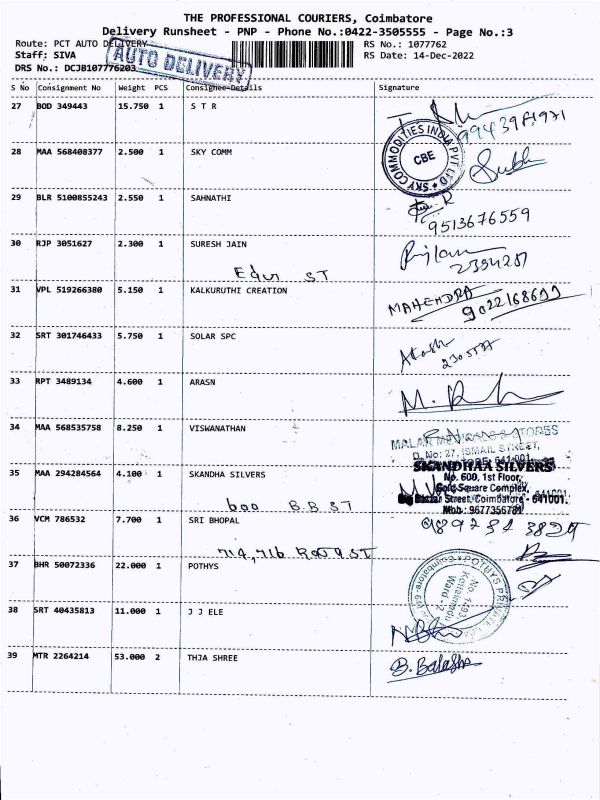 THE PROFESSIONAL COURIERS, Coimbatore
Delivery Runsheet - PNP - Phone No.:0422-3505555 - Page No.:3
Route: PCT AUTO DELIVERY
RS No.: 1077762
Staff: SIVA
RS Date: 14-Dec-2022
DRS No.: DCJB107776203
AUTO DELIVERY
S No Consignment No Weight PCS Consignee Details Signature
27 BOD 349443 15.750 1 S T R
28 MAA 568408377 2.500 1 SKY COMM
SKY COMMODITIES INDIA PVT LTD
CBE
29 BLR 5100855243 2.550 1 SAHNATHI
9513676559
30 RJP 3051627 2.300 1 SURESH JAIN
ST
31 VPL 519266380 5.150 1 KALKURUTHI CREATION MAHENDRA
32 SRT 301746433 5.750 1 SOLAR SPC
Akash
33 RPT 3489134 4.600 1 ARASN
34 MAA 568535758 8.250 1 VISWANATHAN
D. No: 27, ISMAIL STREET,
35 MAA 294284564 4.100 1 SKANDHA SILVERS
SKANDHAA SILVERS
No. 600, 1st Floor,
Gold Square Complex,
Street, Coimbatore - 641001.
Mob : 9677356781
600 B.B. ST
36 VCM 786532 7.700 1 SRI BHOPAL
714, 716
37 BHR 50072336 22.000 1 POTHYS
38 SRT 40435813 11.000 1 J J ELE
39 MTR 2264214 53.000 2 THJA SHREE